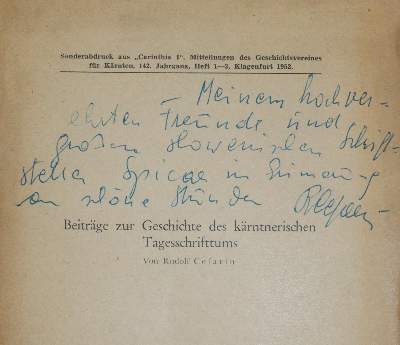 Sonderabdruck aus „Carinthia I“, Mitteilungen des Geschichtsvereines
für Kärnten, 142. Jahrgang, Heft 1—3, Klagenfurt 1952.
– Meinem hochver-
ehrten Freunde und
großen slowenischen Schrift-
steller in Erinnerung
an schöne Stunden
Beiträge zur Geschichte des kärntnerischen
Tagesschrifttums
Von Rudolf Cefarin